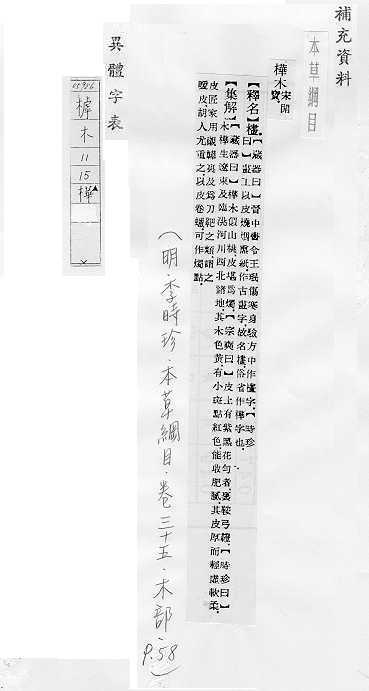 補充資料
本草綱目
樺木宋開寶
【釋名】㯉【藏器曰】晉中書令王珉傷寒身驗方中作㯉字。【時珍
曰】畫工以皮燒烟熏紙。作古畫字。故名㯉。俗省作樺字也。
【集解】【藏器曰】樺木似山桃。皮堪爲燭。【宗奭曰】皮上有紫黑花勻者。裹鞍弓鐙。【時珍曰】
木樺生遼東及臨洮河川西北諸地。其木色黃。有小斑點紅色。能收肥膩。其皮厚而輕虛軟柔。
皮匠家用襯鞾裏。及爲刀靶之類。謂之
暖皮。胡人尤重之。以皮卷蠟。可作燭點。
(明.李時珍.本草綱目.卷三十五.木部.P.58)
異體字表
樺
木
11
15
樺▲